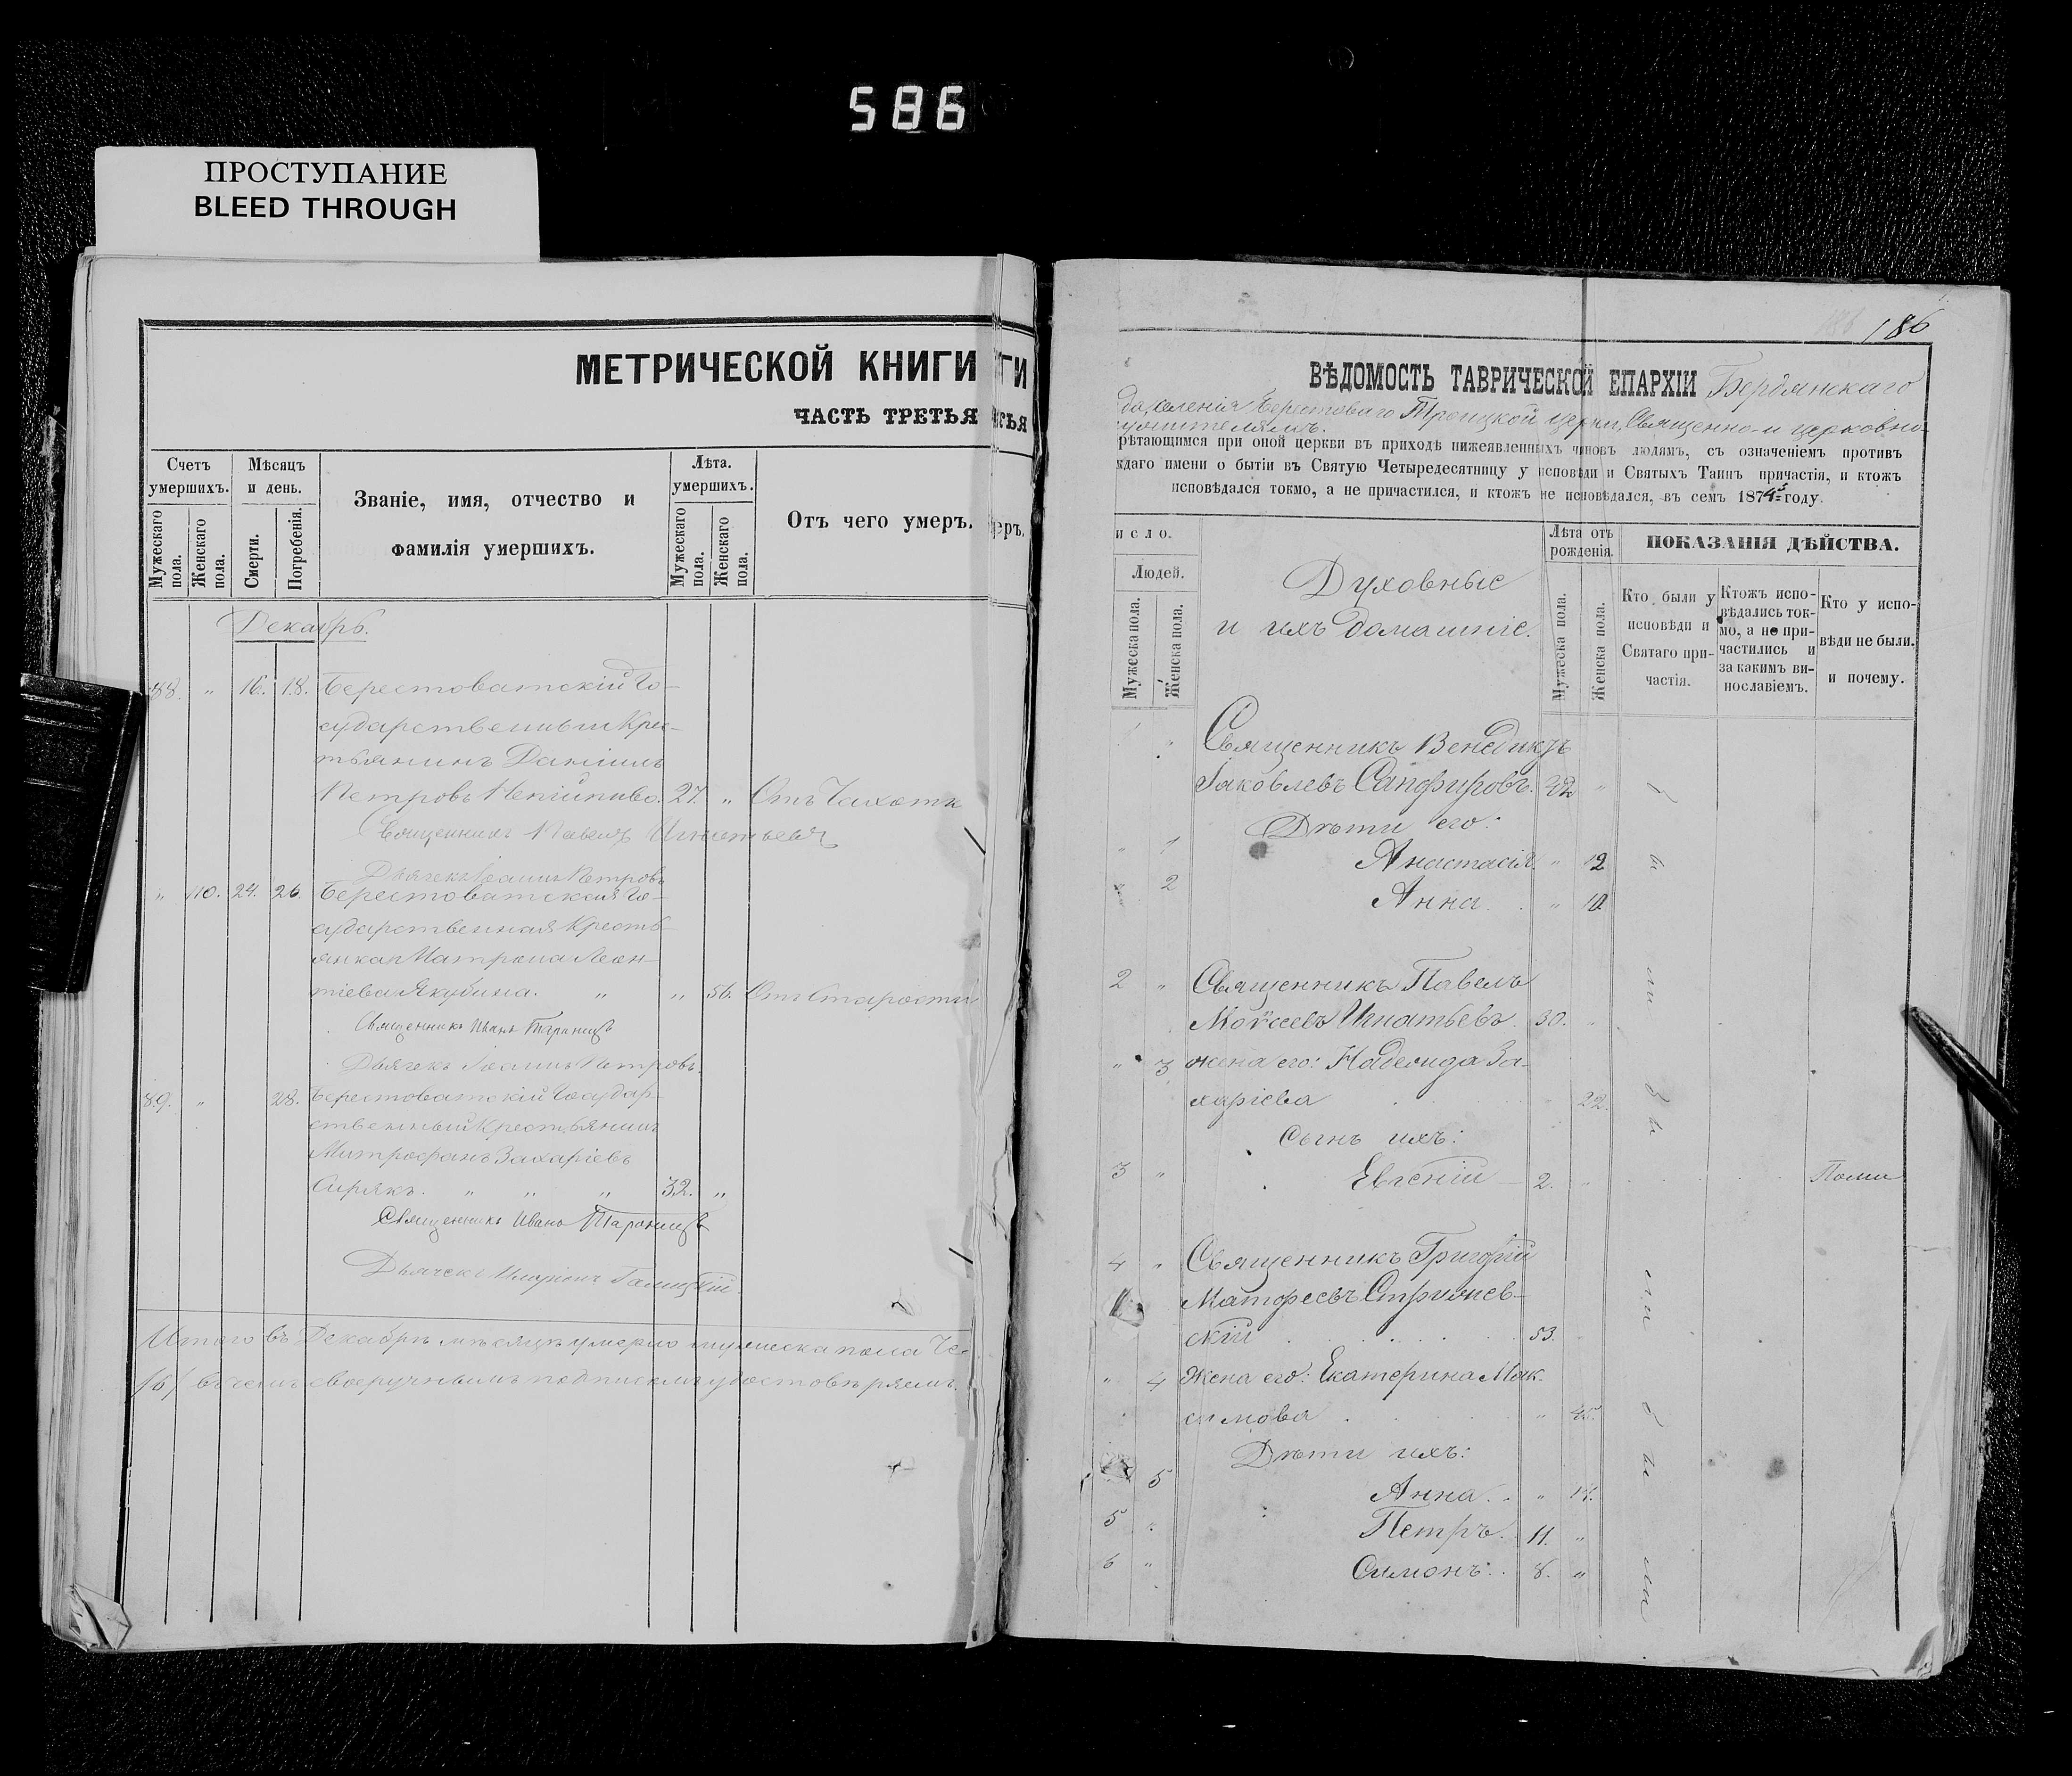 586
ПРОСТУПАНИЕ
BLEED THROUGH
МЕТРИЧЕСКОЙ КНИГИ
ЧАСТЬ ТРЕТЬЯ
Счетъ умершихъ.
Мужескаго пола.
Женскаго пола.
Мѣсяцъ и день.
Смерти.
Погребенія.
Званіе, имя, отчество и
фамилія умершихъ.
Лѣта. умершихъ.
Мужескаго пола.
Женскаго пола.
Отъ чего умеръ.
Декабрь.
88. " 16. 18. Берестоватскій Го-
сударственный Крес-
тьянинъ Даніилъ
Петровъ 27. " Отъ Чахотк
Священникъ Павелъ Игнатьевъ
Дьячекъ Іоаннъ Петровъ
" 110. 24. 26. Берестоватская Го-
сударственная Кресть-
янка Матрона Леон-
тіева Якубина. " " 56. Отъ Старости
Священникъ Иванъ
Дьячекъ Іоаннъ Петровъ.
89. " 28. Берестоватскій Государ-
ственный Крестьянинъ
Митрофанъ Захаріевъ
Сирякъ. " " " 32. "
Священникъ Иванъ
Дьячекъ Иларіонъ Галицкій.
Итого въ Декабрѣ мѣсяцѣ умерло мужеска пола Че-
/6/ въ чемъ своеручнымъ подписомъ удостовѣряемъ.
186
ВѢДОМОСТЬ ТАВРИЧЕСКОЙ ЕПАРХІИ Бердянскаго
да, селенія Берестоваго Троицкой церкви, Священно- и церковно-
служителямъ.
рѣтающимся при оной церкви въ приходѣ нижеявленныхъ чиновъ людямъ, съ означеніемъ противъ
ждаго имени о бытіи въ Святую Четыредесятницу у исповѣди и Святыхъ Таинъ причастія, и ктожъ
исповѣдался токмо, а не причастился, и ктожъ не исповѣдался, въ семъ 187 году.
исло.
Людей.
Мужеска пола.
Женска пола.
Духовные
и ихъ домашніе.
Лѣта отъ рожденія.
Мужеска пола.
Женска пола.
ПОКАЗАНІЯ ДѢЙСТВА.
Кто были у исповѣди и Святаго причастія.
Ктожъ исповѣдались токмо, а не причастились и за какимъ винославіемъ.
Кто у исповѣди не были. и почему.
1 " Священникъ Венедиктъ
Іаковлевъ Сапфировъ. "
Дѣти его:
" 1 Анастасія. " 12
" 2 Анна. " 10.
2 " Священникъ Павелъ
Моѵсеевъ Игнатьевъ. 30. "
" 3 жена его: Надежда За-
харіева 22.
Сынъ ихъ:
3 " Евгеній 2. " Помал
4 " Священникъ Григорій
Матфеевъ Стрижев-
скій 53.
" 4 Жена его: Екатерина Мак-
симова . " 45.
Дѣти ихъ:
5 Анна. . "
5 " Петръ. 11. "
6 " Симонъ. . 8. "